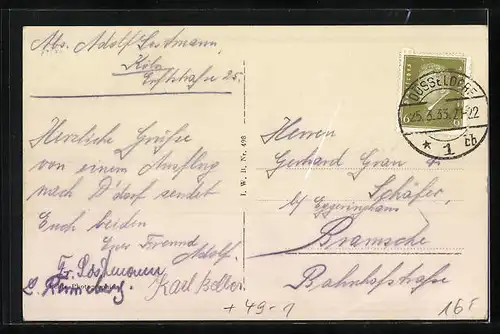 Abs. Adolf Lostmann,
Köln
Erftstraße 25.
Herzliche Grüße
von einem Ausflug
nach D'dorf sendet
Euch beiden
Euer Freund
Adolf.
Fr. Lostmann
Karl Keller
I. W. B. Nr. 408
DÜSSELDORF
25.3.33.21-22
* 1 cb
6
Herren
Gerhard Grau u.
Schäfer,
b/ Eggeringhaus
Bramsche
Bahnhofstraße
+49-1
16F